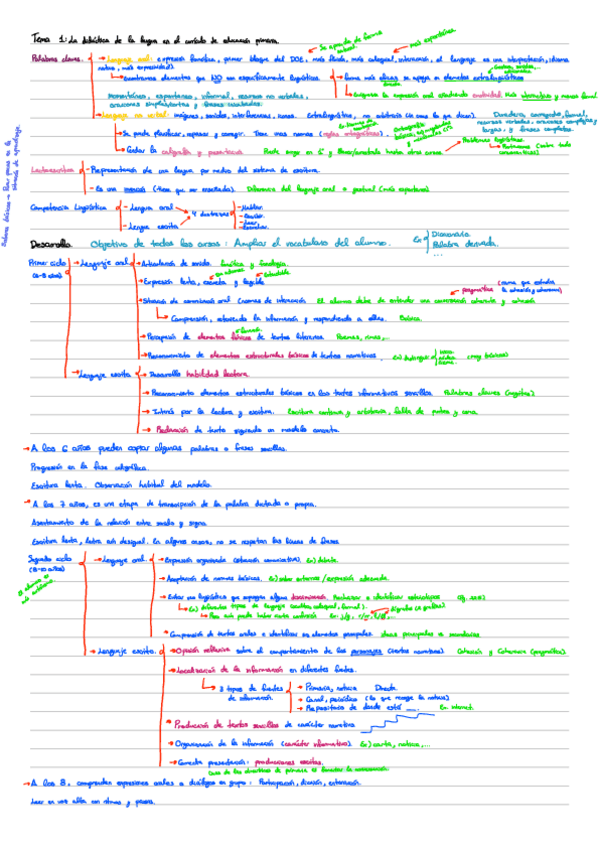 Tema 1: La didáctica de la lengua en el currículo de educación primaria.
Se aprende de forma natural.
más espontánea
Palabras claves
→ Lenguaje oral: expresión familiar, primer bloque del DOE, más fluida, más coloquial, interacción, el lenguaje es una interpretación, idioma
nativo, más expresividad.
Combinamos elementos que NO son específicamente lingüísticos
forma más eficaz se apoya en elementos extralingüísticos
Enriquece la expresión oral añadiendo emotividad. Más interactiva y menos formal
Momentáneo, espontáneo, informal, recursos no verbales,
oraciones simples/cortas y frases inacabadas.
→ Lenguaje no verbal: imágenes, sonidos, interferencias, iconos. Extralingüística, no arbitrario (es como lo que dicen).
Duradera, corregida, formal,
recursos verbales, oraciones complejas y
largas, y frases completas.
→ Se puede planificar, repasar y corregir. Tiene unas normas (reglas ortográficas).
Cuidar la caligrafía y presentación.
Problemas lingüísticos.
Lectoescritura
- Representación de una lengua por medio del sistema de escritura.
- Es una invención (tiene que ser enseñada). Diferencia del lenguaje oral o gestual (más espontáneo)
Saberes básicos → Para poner en la
situación de aprendizaje.
Competencia Lingüística
- Lengua oral
- Lengua escrita
4 destrezas
- Hablar.
- Escuchar.
- Leer.
- Escribir.
Desarrollo Objetivo de todos los cursos: Ampliar el vocabulario del alumno. Ej:
Diccionario.
Palabra derivada.
...
Primer ciclo
(6-8 años)
→ Lenguaje oral
→ Articulación de sonido. Fonética y fonología.
→ Expresión lenta, correcta y legible
→ Situación de comunicación oral (normas de interacción) El alumno debe de entender una conversación coherente y cohesión
pragmática (rama que estudia
la cohesión y coherencia)
Comprensión, obteniendo la información y respondiendo a ellas. Básica.
→ Percepción de elementos básicos de textos literarios. Poemas, rimas,...
→ Reconocimiento de elementos estructurales básicos de textos narrativos. Ej) distinguir
(muy básicos)
→ Lenguaje escrito
→ Desarrollo habilidad lectora.
→ Reconocimiento elementos estructurales básicos en los textos informativos sencillos. Palabras claves (negrita).
→ Interés por la lectura y escritura. Escritura continua y arbitraria, falta de puntos y coma.
→ Producción de texto siguiendo un modelo concreto.
→ A los 6 años pueden copiar algunas palabras o frases sencillas.
Progresión en la fase caligráfica.
Escritura lenta. Observación habitual del modelo.
→ A los 7 años, es una etapa de transcripción de la palabra dictada o propia.
Asentamiento de la relación entre sonido y signo.
Escritura lenta, letra aún desigual. En algunos casos, no se respetan las líneas de frases
Segundo ciclo
(8-10 años)
El alumno es
más autónomo
→ Lenguaje oral
→ Expresión organizada (situación comunicativa). Ej) debate
→ Adaptación de normas básicas. Ej) saber entornos / expresión adecuada.
→ Evitar usos lingüísticos que supongan alguna discriminación. Rechazar e identificar estereotipos
Ej) diferentes tipos de lenguaje (ámbito coloquial, formal).
Para así pueda haber cierta confusión Ej: j/g,
dígrafos (2 grafías)
→ Comprensión de textos orales e identificar sus elementos principales. Ideas principales vs secundarias
→ Lenguaje escrito
→ Opinión reflexiva sobre el comportamiento de los personajes (textos narrativos). Cohesión y Coherencia (pragmática).
→ Localización de la información en diferentes fuentes.
3 tipos de fuentes
de información.
→ Primaria, noticia. Directa
→ Canal, periódico (lo que recoge la noticia)
→ Repositorio de donde está __. Ej: internet.
→ Producción de textos sencillos de carácter narrativo
→ Organización de la información (carácter informativo). Ej) carta, noticia,...
→ Correcta presentación: producciones escritas.
Uno de los objetivos de primaria es fomentar la comunicación
→ A los 8, comprenden expresiones orales o diálogos en grupo: Participación, discusión, entonación.
Leer en voz alta con ritmo y pausa.